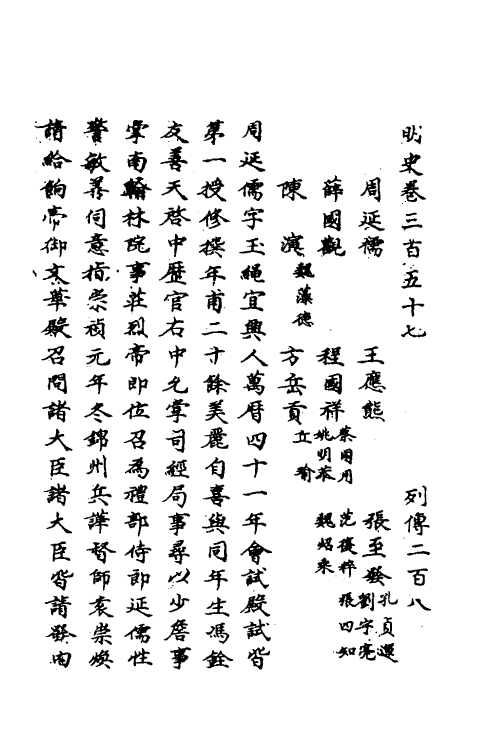 明史卷三百五十七 列傳二百八
周延儒 王應熊 張至發 孔貞運 劉宇亮
薛國觀 程國祥 蔡國用 姚明恭 范復粹 張四知 魏炤乘
陳演 魏藻德 方岳貢 丘瑜
周延儒字玉繩宜興人萬曆四十一年會試殿試皆
第一授修撰年甫二十餘美麗自喜與同年生馮銓
友善天啓中歷官右中允掌司經局事尋以少詹事
掌南翰林院事莊烈帝即位召為禮部侍郎延儒性
警敏善伺意指崇禎元年冬錦州兵譁督師袁崇煥
請給餉帝御文華殿召問諸大臣諸大臣皆請發內